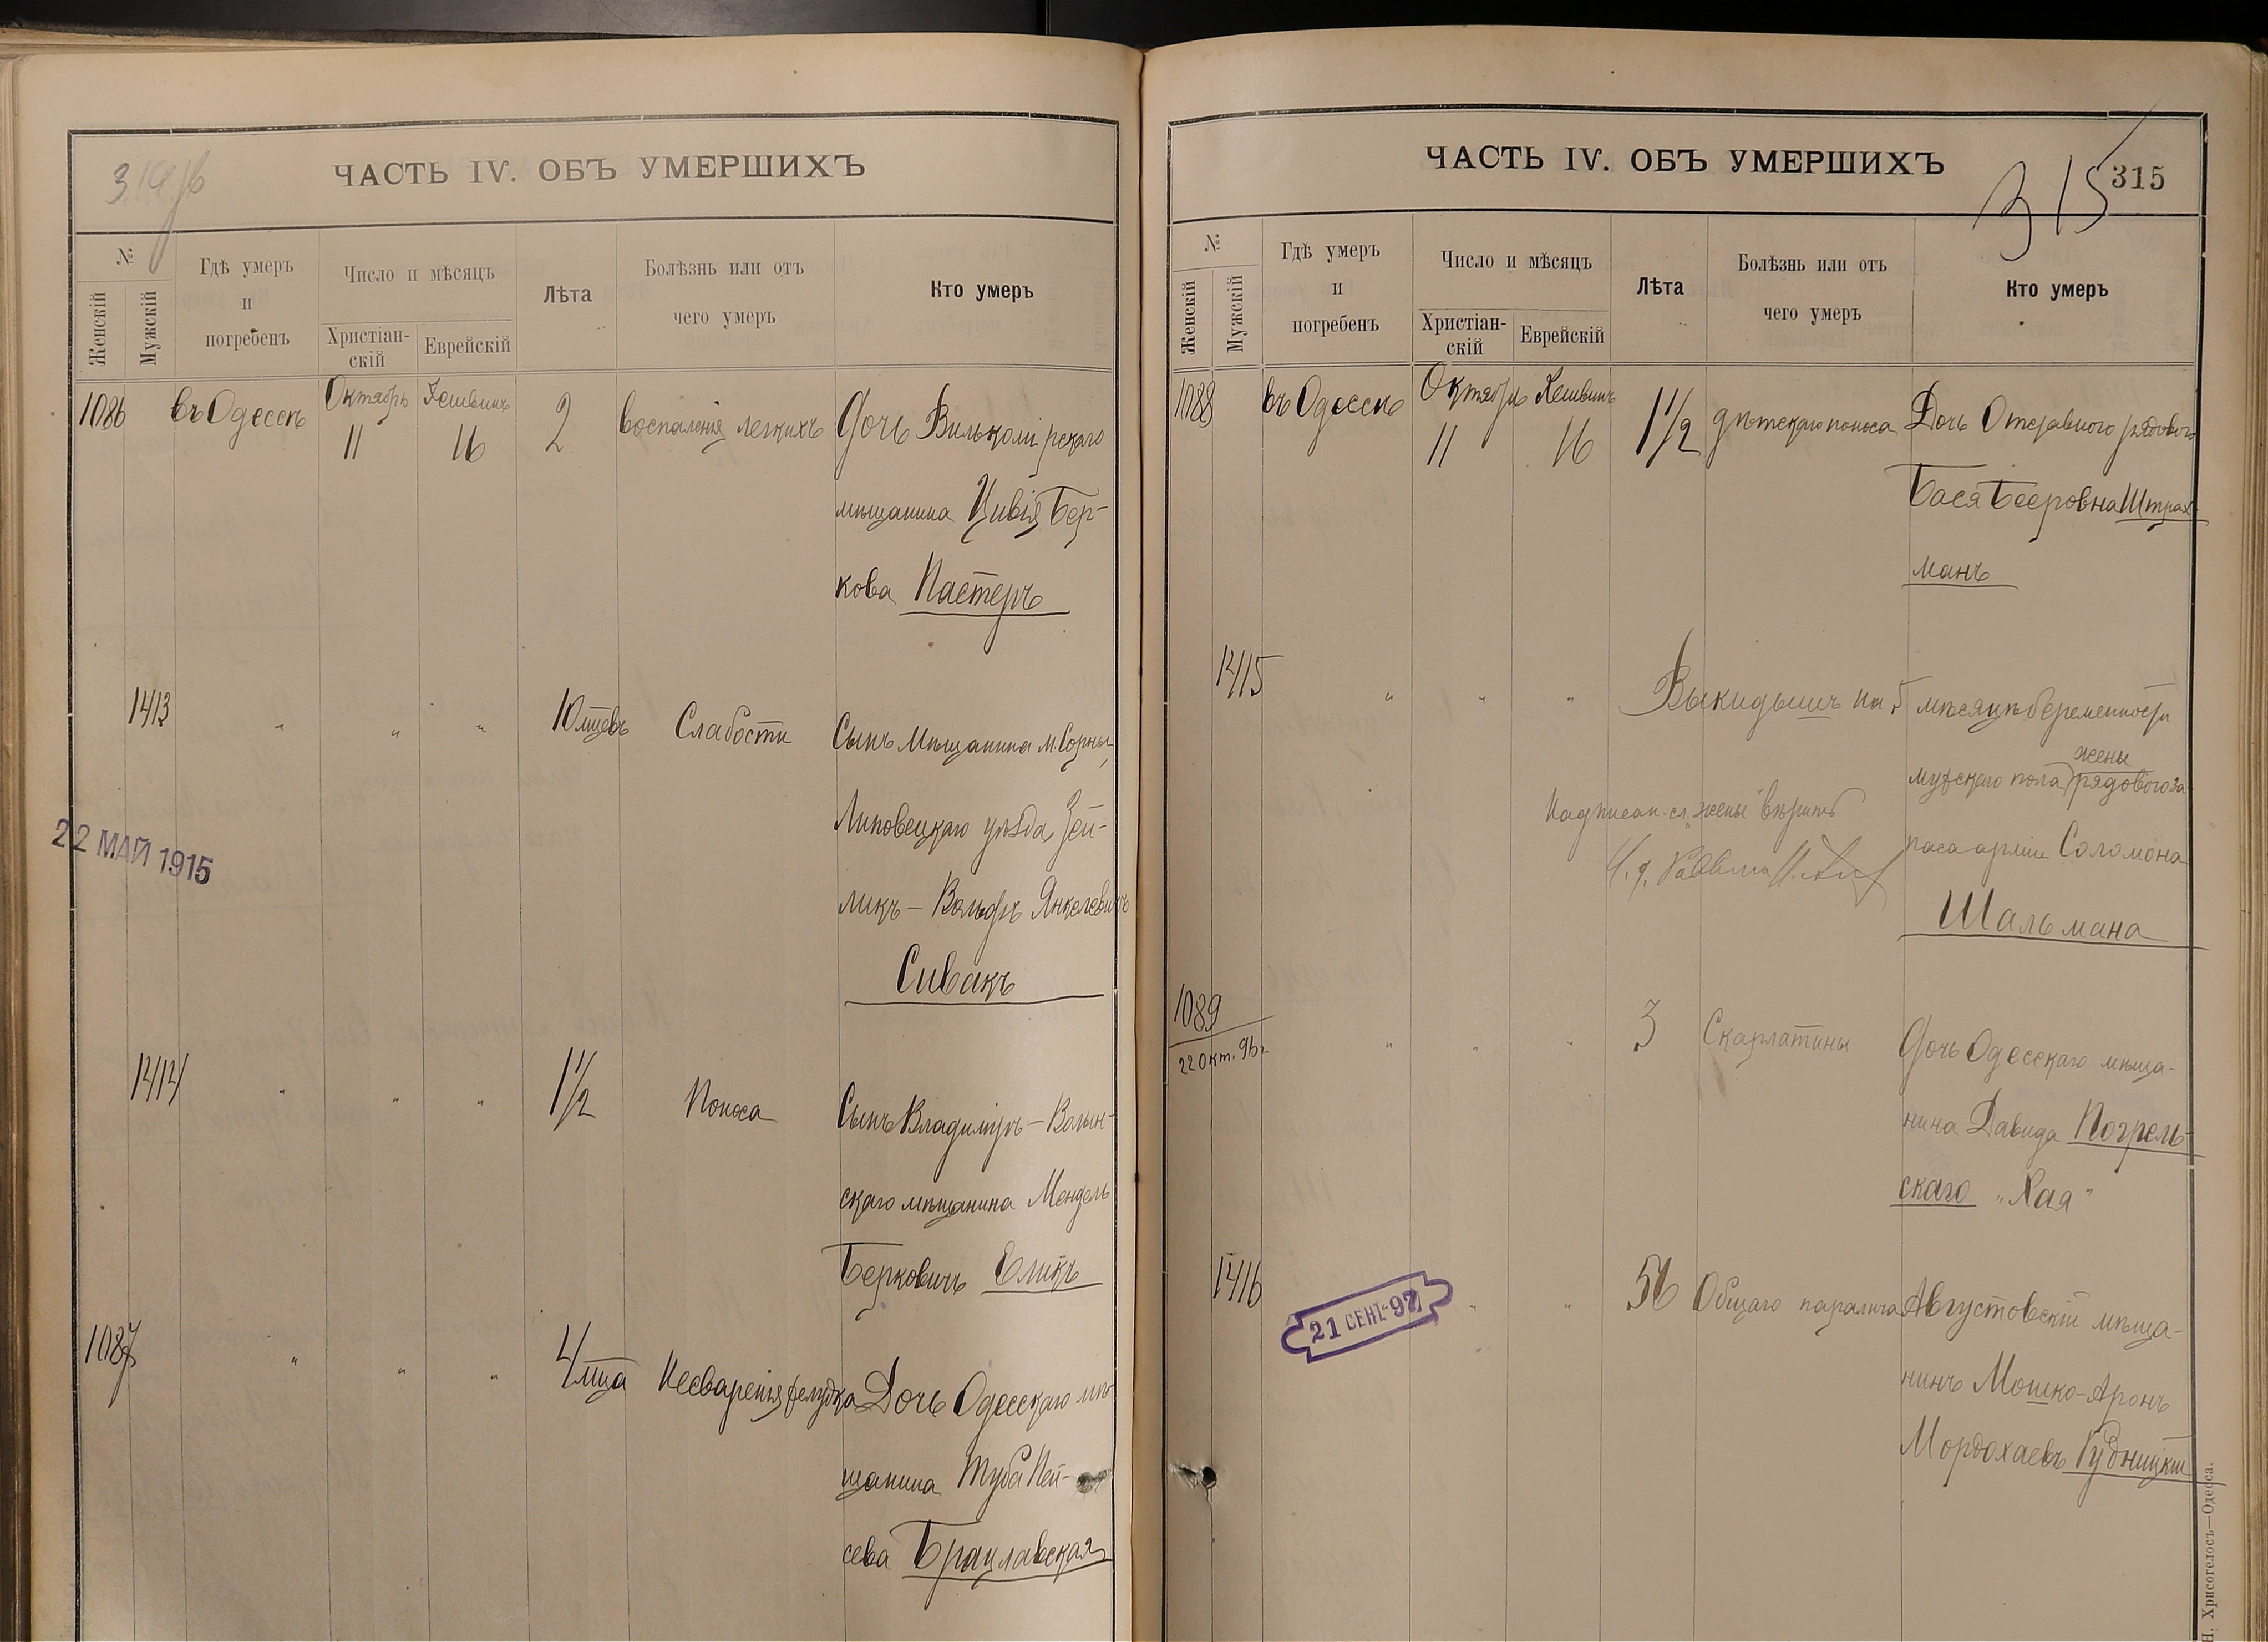 ЧАСТЬ IV. ОБЪ УМЕРШИХЪ
№
Женскій
Мужскій
Гдѣ умеръ
и
погребенъ
Число и мѣсяцъ
Христіан-
скій
Еврейскій
Лѣта
Болѣзнь или отъ
чего умеръ
Кто умеръ
1086 въ Одессѣ Октябрь 11 Хешвинъ 16 2 воспаленія легкихъ Дочь Вилькомірскаго
мѣщанина Цивія Бер-
кова Пастеръ
1413 " " " 10 мцевъ Слабости Сынъ Мѣщанина м. Сорны,
Липовецкаго уѣзда, Зей-
ликъ - Вольфъ Янкелевичъ
Сивакъ
22 МАЙ 1915
1414 " " " 1 1/2 Поноса Сынъ Владиміръ - Волын-
скаго мѣщанина Мендель
Берковичъ Еликъ
1087 " " " 4 мца Несваренія желудка Дочь Одесскаго мѣ-
щанина Туба Пей-
сева Брацлавская
ЧАСТЬ IV. ОБЪ УМЕРШИХЪ
315
315
№
Женскій
Мужскій
Гдѣ умеръ
и
погребенъ
Число и мѣсяцъ
Христіан-
скій
Еврейскій
Лѣта
Болѣзнь или отъ
чего умеръ
Кто умеръ
1088 въ Одессѣ Октябрь 11 Хешвинъ 16 1 1/2 дѣтскаго поноса Дочь Отставного рядового
Бася Бееровна Штрах-
манъ
1415 " " " Выкидышъ на 5 мѣсяцѣ беременности
жены
мужскаго пола рядового за
паса арміи Соломона
Шальмана
Надписан. сл. "жены" вѣрить
И. д. Раввина
1089 " " " 3 Скарлатины Дочь Одесскаго мѣща-
22 Окт. 96 г.
нина Давида Погрель-
скаго "Хая"
1416 " " 56 Общаго паралича Августовскій мѣща-
21 СЕН. 97
нинъ Мошко-Аронъ
Мордохаевъ Рудницкій
Н. Хрисогелосъ—Одесса.